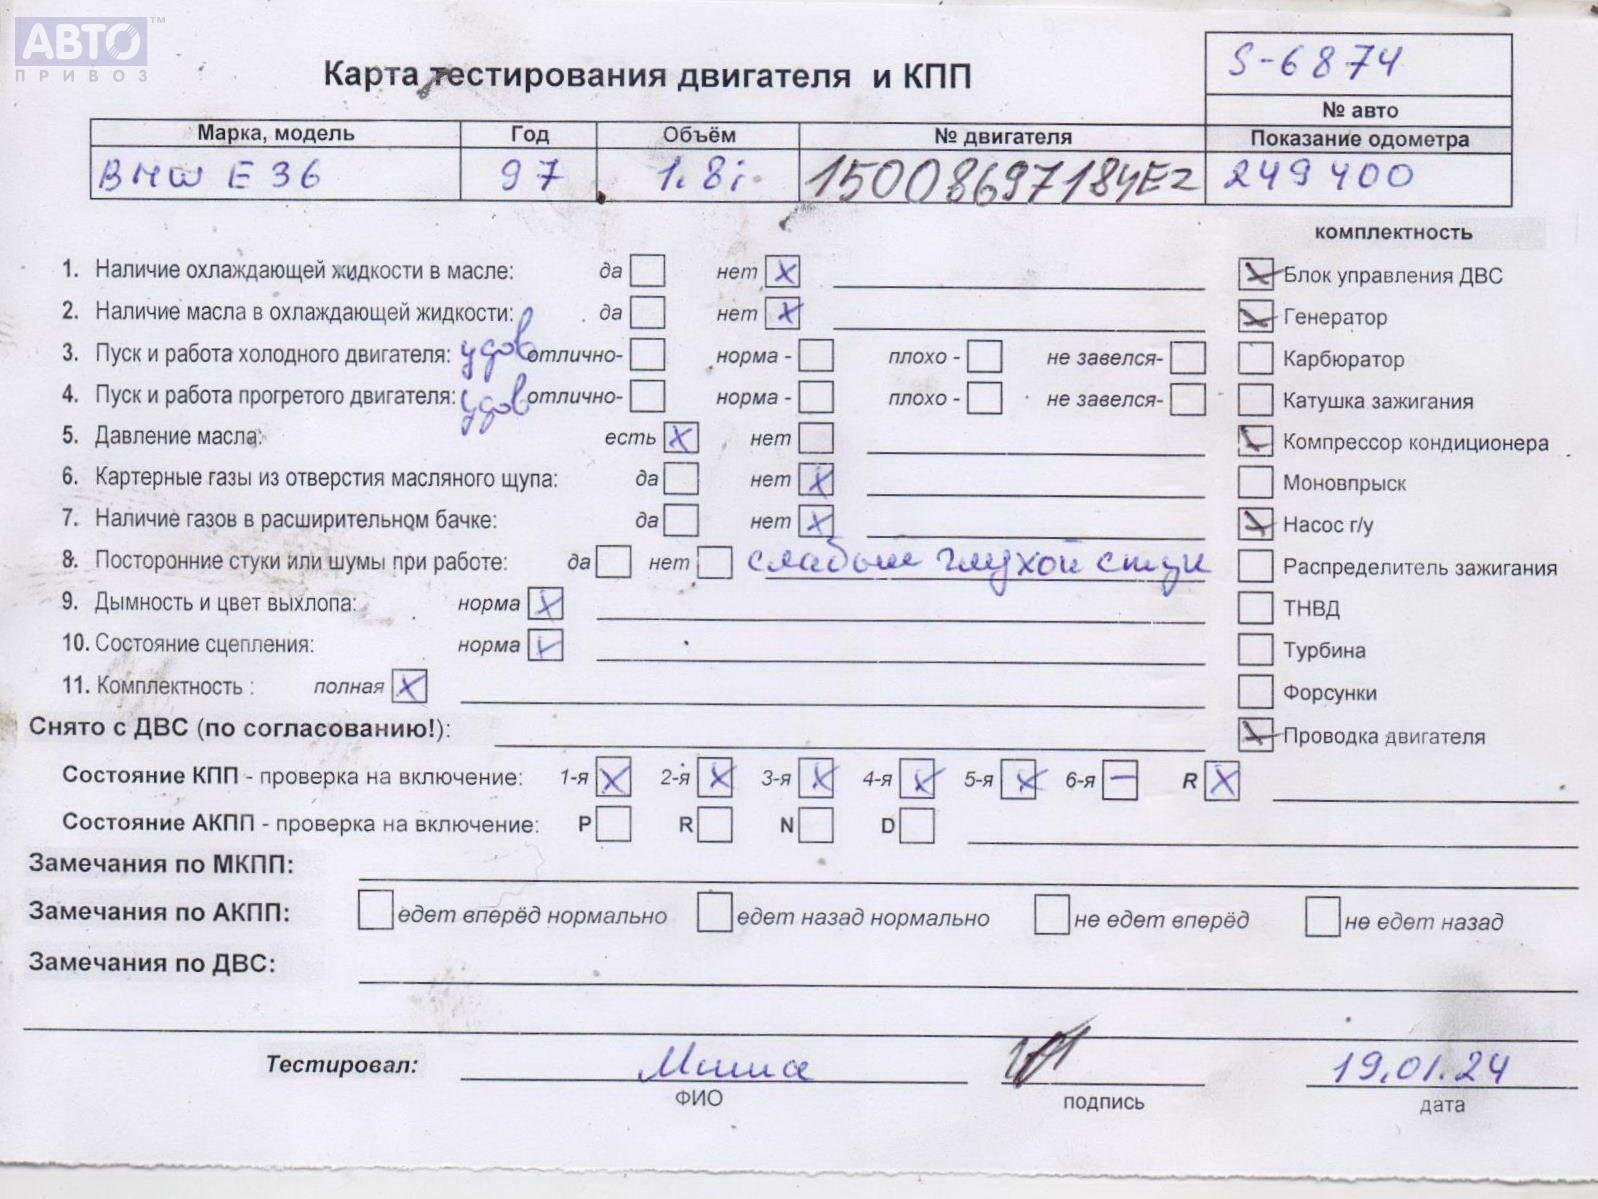 АВТО™
ПРИВОЗ
Карта тестирования двигателя и КПП
S-6874
№ авто
Марка, модель Год Объём № двигателя Показание одометра
BMW E 36 97 1.8i 15008697184E2 249400
комплектность
1. Наличие охлаждающей жидкости в масле: да нет X
Блок управления ДВС
2. Наличие масла в охлаждающей жидкости: да нет X
Генератор
3. Пуск и работа холодного двигателя: удов отлично- норма - плохо - не завелся-
Карбюратор
4. Пуск и работа прогретого двигателя: удов отлично- норма - плохо - не завелся-
Катушка зажигания
5. Давление масла: есть X нет
Компрессор кондиционера
6. Картерные газы из отверстия масляного щупа: да нет X
Моновпрыск
7. Наличие газов в расширительном бачке: да нет X
Насос г/у
8. Посторонние стуки или шумы при работе: да нет слабый глухой стук
Распределитель зажигания
9. Дымность и цвет выхлопа: норма X
ТНВД
10. Состояние сцепления: норма
Турбина
11. Комплектность : полная X
Форсунки
Снято с ДВС (по согласованию!):
Проводка двигателя
Состояние КПП - проверка на включение: 1-я X 2-я X 3-я X 4-я X 5-я X 6-я – R X
Состояние АКПП - проверка на включение: P R N D
Замечания по МКПП:
Замечания по АКПП: едет вперёд нормально едет назад нормально не едет вперёд не едет назад
Замечания по ДВС:
Тестировал: Миша 19.01.24
ФИО подпись дата